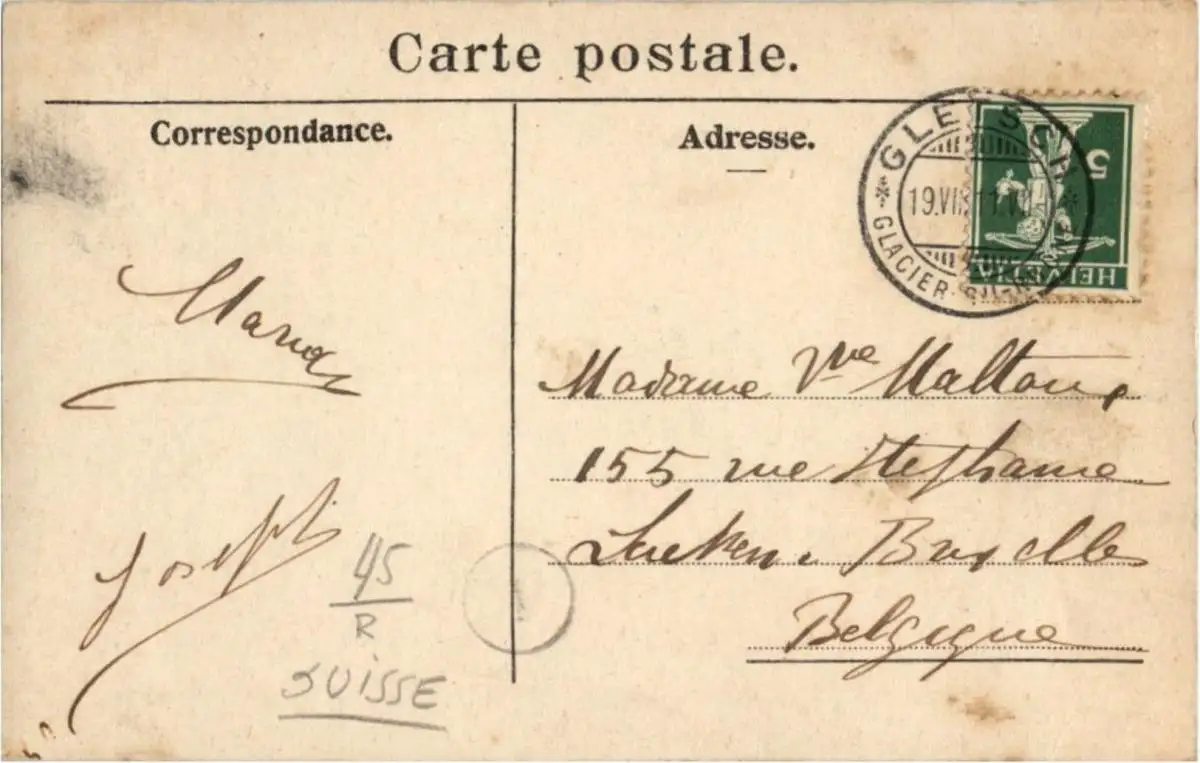 Carte postale.
Correspondance.
Adresse.
GLETSCH
19.VII.11.VII
GLACIER-DU-RHÔNE
5
HELVETIA
Madame Vve Maltaux
155 rue Stephanie
Laeken. Bruxelles
Belgique
Joseph
45
R
SUISSE